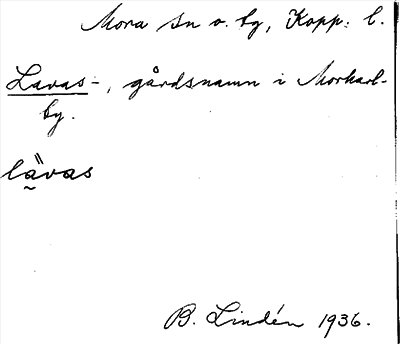 Mora sn o. by, Kopp. l.
Lavas-, gårdsnamn i Morkarl-
by.
lavas
B. Lindén 1936.